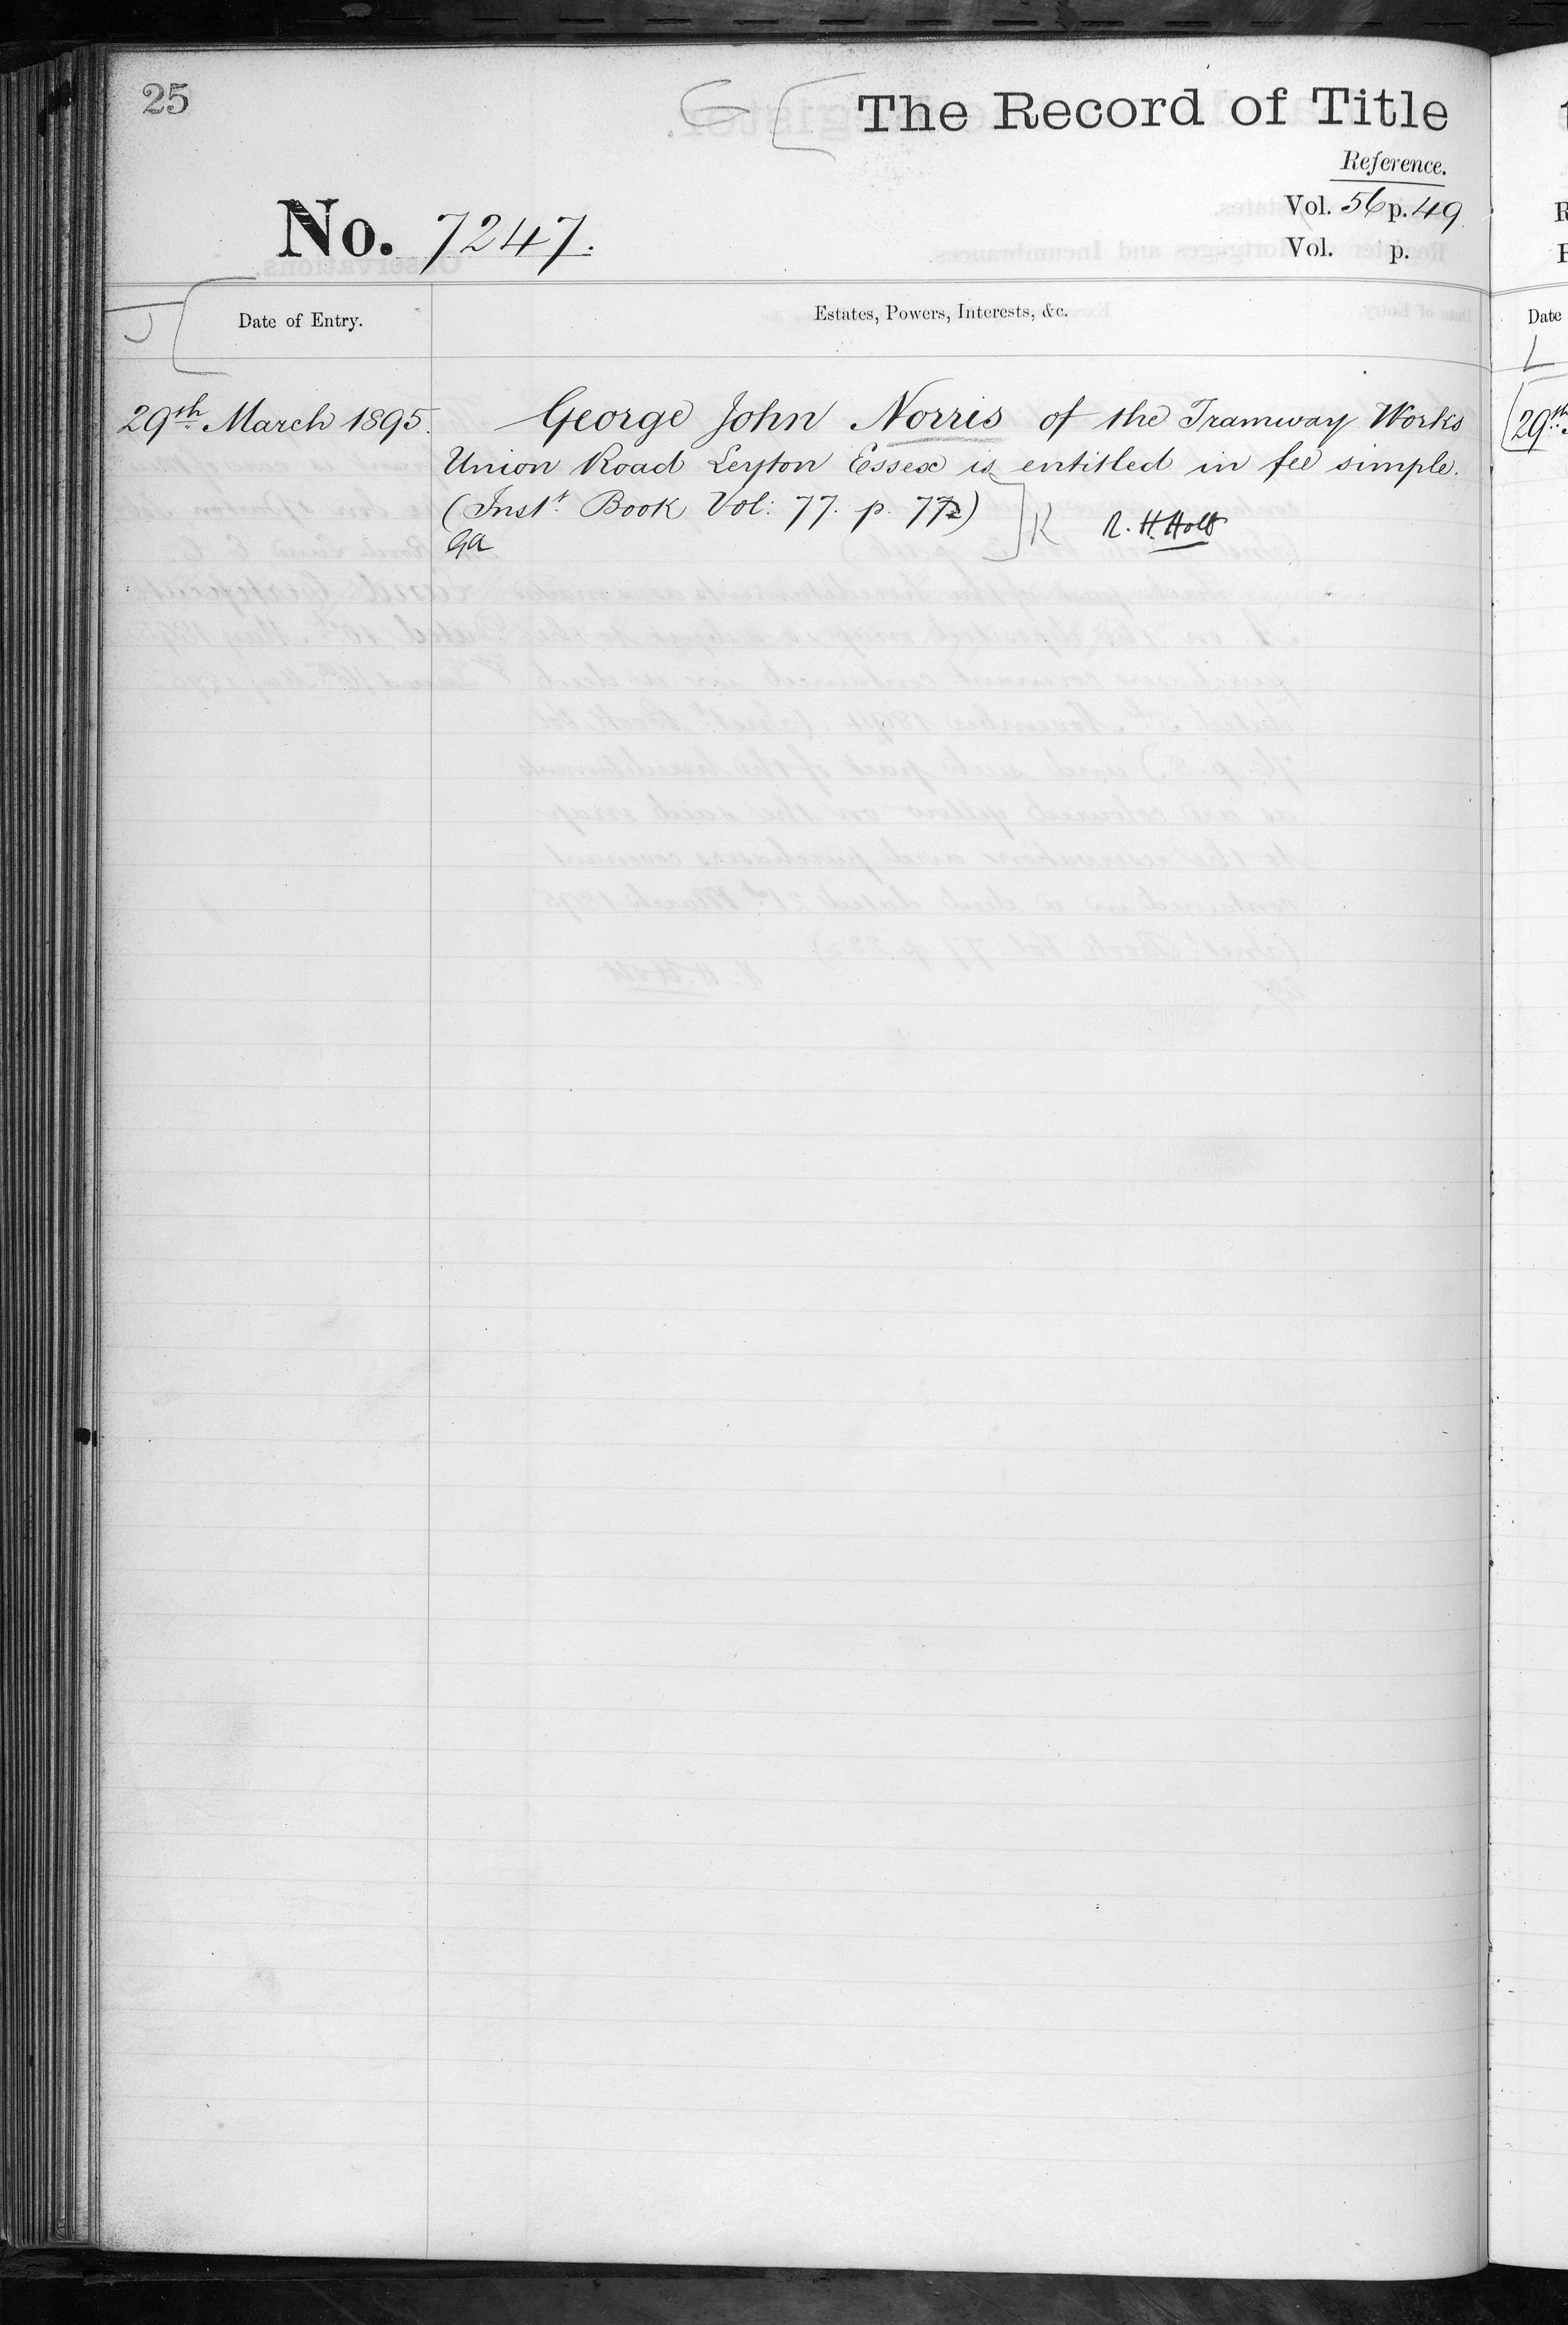 25
G [ The Record of Title
Reference.
No. 7247.
Vol. 56 p. 49.
Vol. p.
J [ Date of Entry.
Estates, Powers, Interests, &c.
29th March 1895.
George John Norris of the Tramway Works
Union Road Leyton Essex is entitled in fee simple.
(Inst. Book Vol: 77. p. ) ] K
R. H. Holt
GA
Date
L
[ 29th